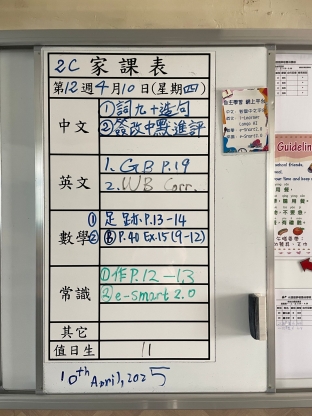 2C 家課表
第12週4月10日(星期四)
中文
①詞九+造句
②簽改中默進評
英文
1. GB P.19
2. WB Corr.
數學
① 足跡 P.13-14
② Ⓑ P.40 Ex.15(9-12)
常識
①作P.12-13
②e-smart 2.0
其它
值日生 11
10th April, 2025
自主學習 網上平台
Guideline